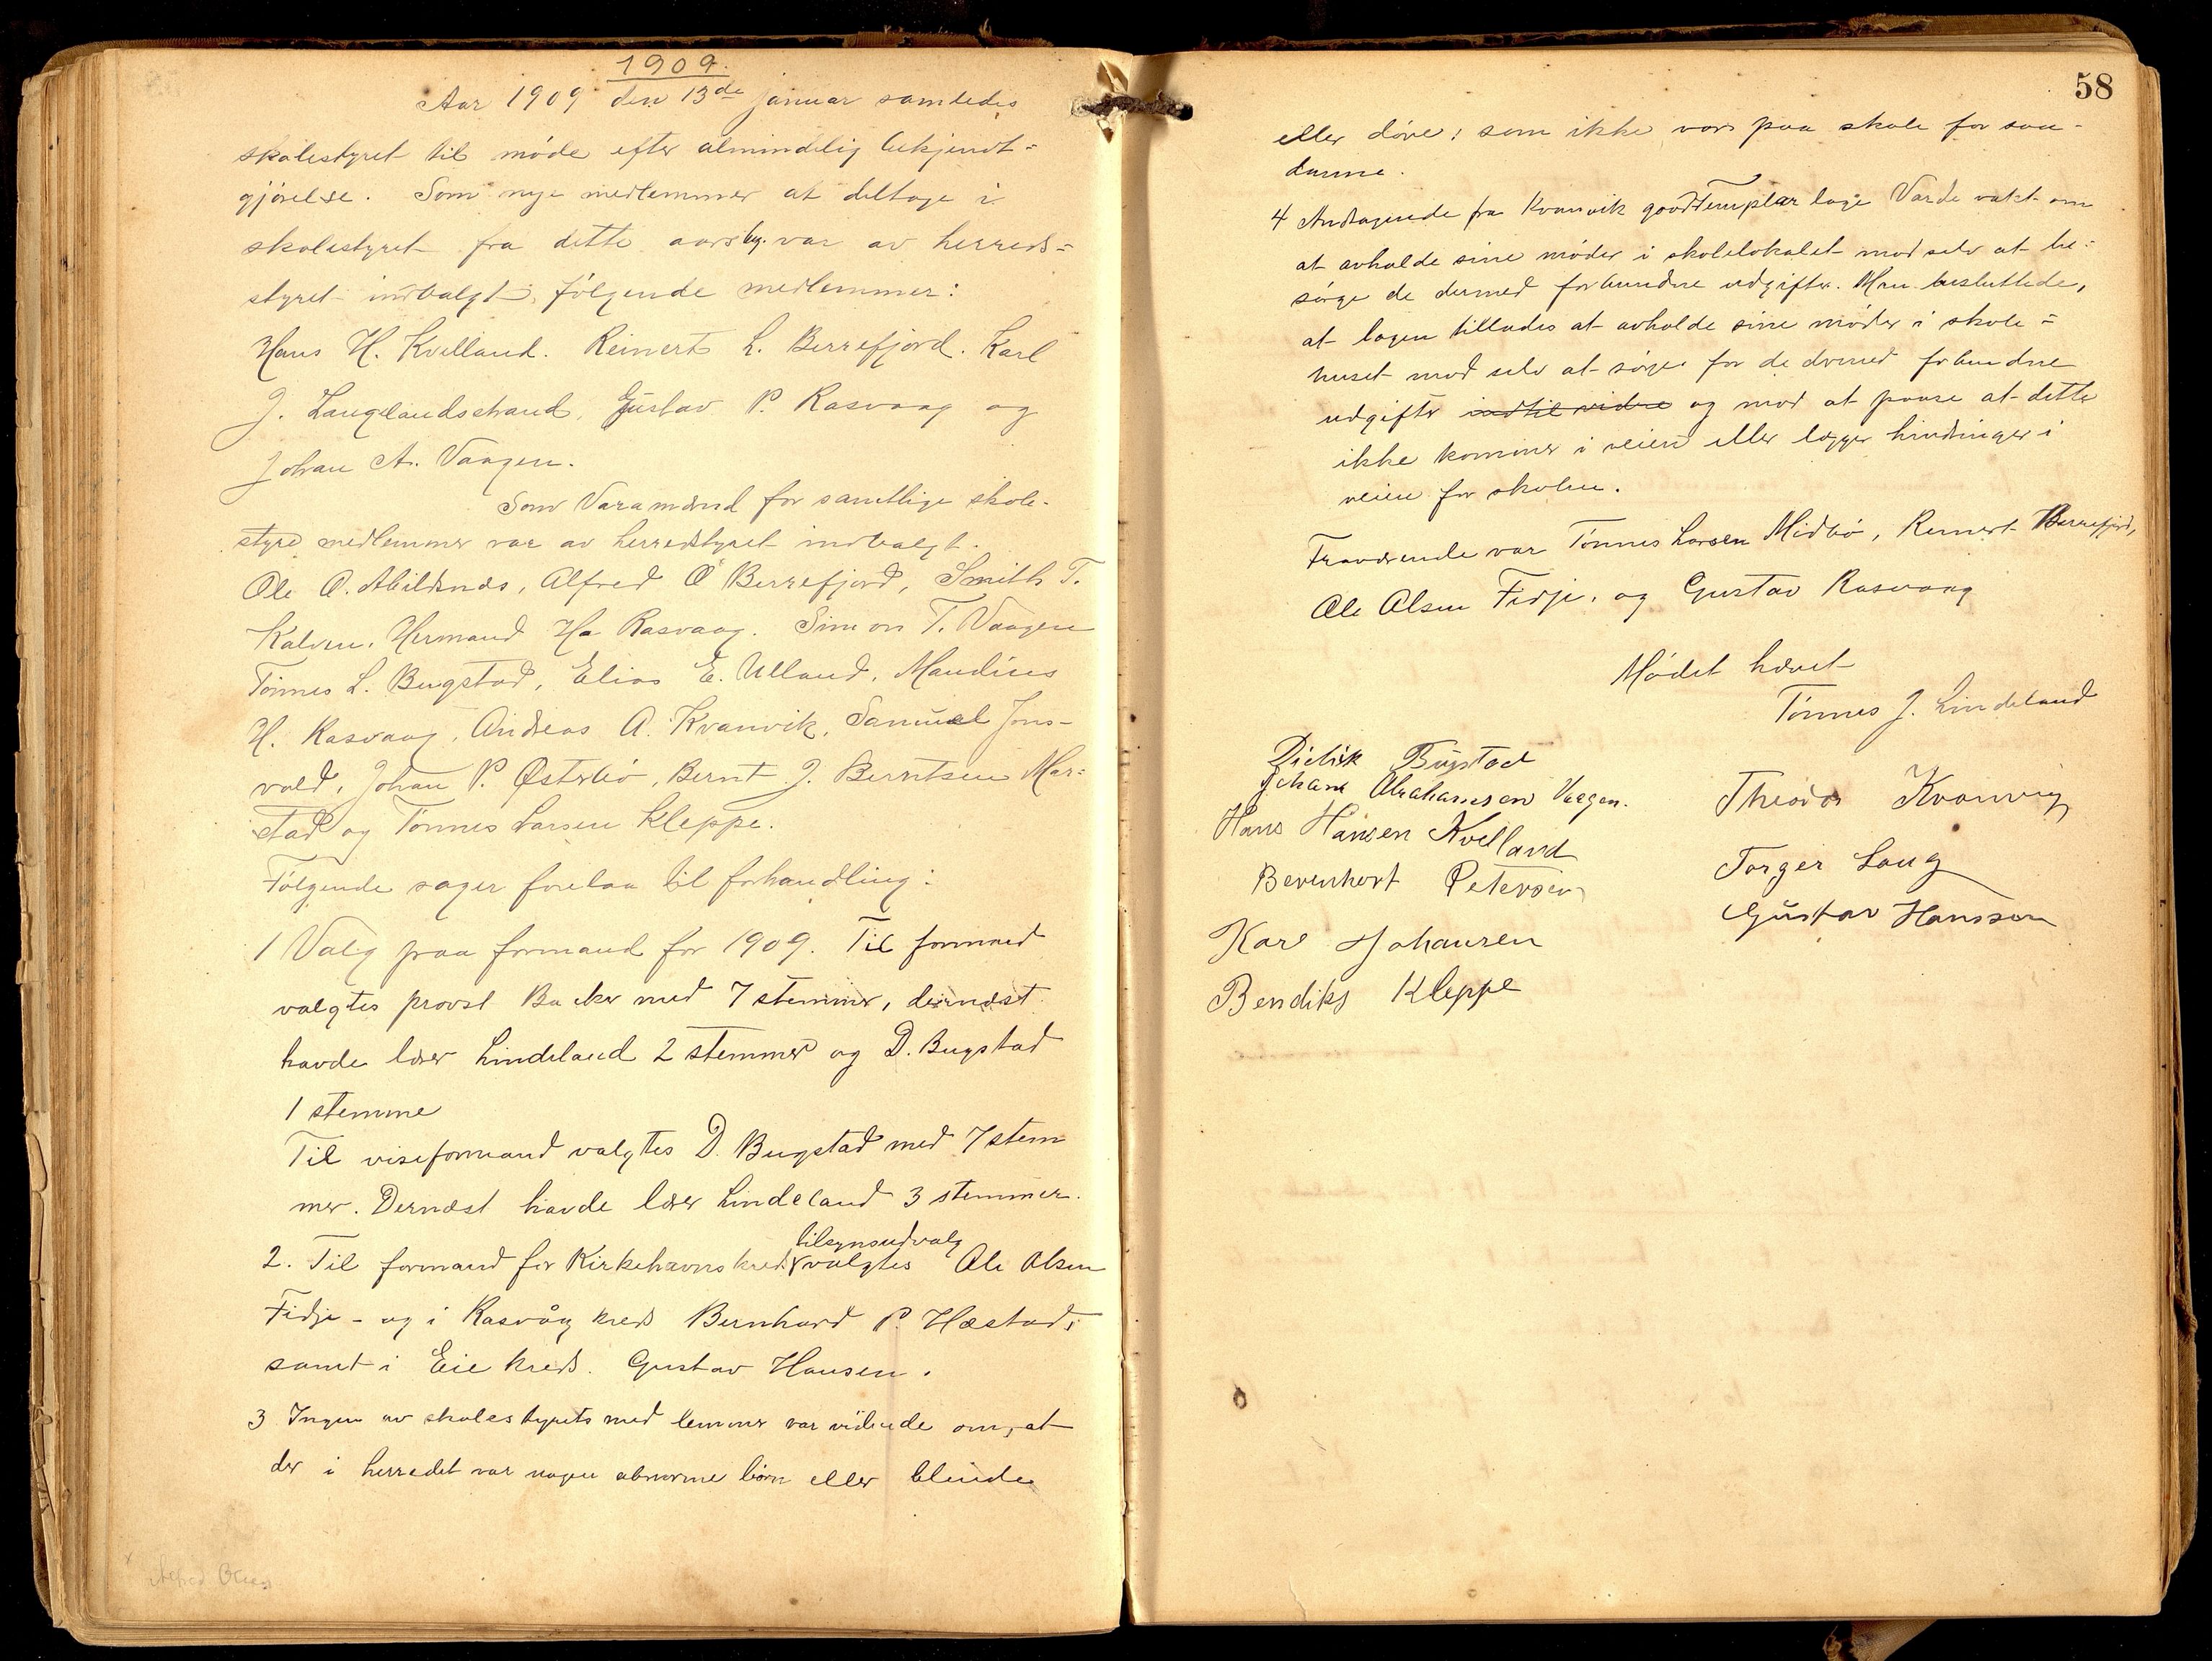 1909.
Aar 1909 den 13de januar samledes
skolestyret til møde efter almindelig bekjendt=
gjørelse. Som nye medlemmer at deltage i
skolestyret fra dette aars beg. var av herreds=
styret indvalgt følgende medlemmer:
Hans H. Kvelland. Reinert L. Berrefjord. Karl
J. Langelandsstrand, Gustav P. Rasvaag og
Johan A. Vaagen.
Som Varamænd for samtlige skole-
styre medlemmer var av herredstyret indvalgt.
Ole O. Abildsnæs, Alfred O Berrefjord, Smith T.
Kalven, Hermand Ha Rasvaag. Simon T. Vaagen
Tønnes L. Bugstad, Elias E. Ulland, Maudius
H. Rasvaag, Andreas A. Kvanvik, Samuel Jons-
vold, Johan P. Østebø, Bernt J. Berntsen Mar=
stad og Tønnes Larsen Kleppe.
Følgende sager forelaa til forhandling:
1 Valg paa formand for 1909. Til formand
valgtes provst Barker med 7 stemmer, dernæst
havde lærer Lindeland 2 stemmer og D. Bugstad
1 stemme
Til viseformand valgtes D. Bugstad med 7 stem
mer. Dernæst havde lærer Lindeland 3 stemmer.
tilsynsudvalg
2. Til formand for Kirkehavns kreds valgtes Ole Olsen
Fidje - og i Rasvåg kreds Bernhard P. Hæstad,
samt i Eie kreds. Gustav Hansen.
3 Ingen av skolestyrets medlemmer var vidende om, at
der i herredet var nogen abnorme børn eller blinde
58
eller døve, som ikke var paa skole for saa-
danne.
4 Andragende fra Kvanvik goodTemplar loge Varde vakt om
at avholde sine møder i skolelokalet mod selv at be=
sørge de dermed forbundne udgifter. Man besluttede,
at logen tillades at avholde sine møder i skole=
huset mod selv at sørge for de dermed forbundne
udgifter indtil videre og mod at passe at dette
ikke kommer i veien eller lægger hindringer i
veien for skolen.
Fraværende var Tønnes Larsen Midbø, Reinert Berrefjord,
Ole Olsen Fidje, og Gustav Rasvaag
Mødet hævet
Tønnes J. Lindeland
Didrik Bugstad
Johan Abrahamsen Vaagen.
Theodor Kvanvig
Hans Hansen Kvelland
Torger Laug
Berenhert Petersen
Gustav Hanssen
Karl Johansen
Bendiks Kleppe